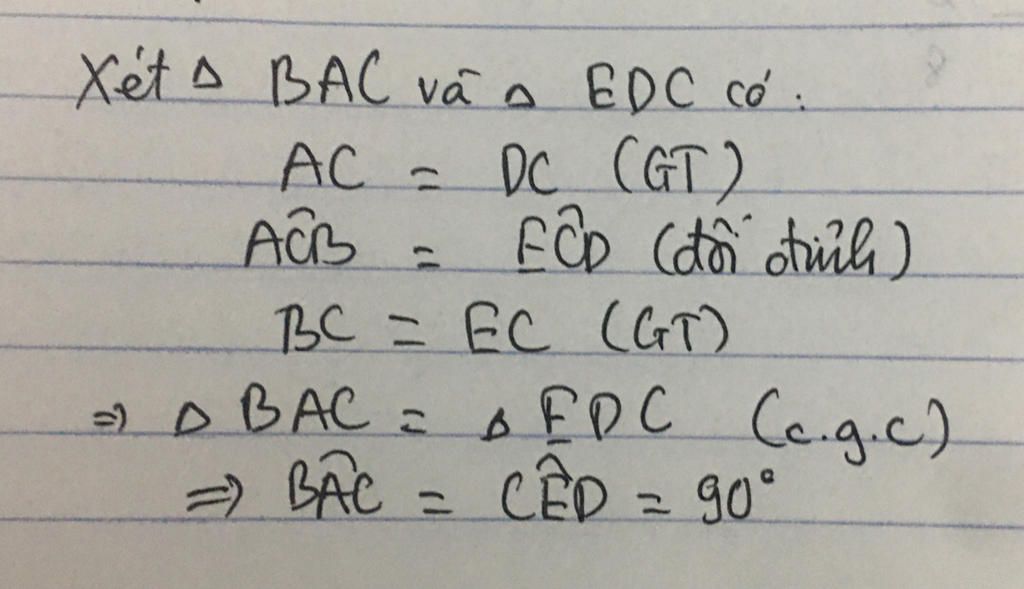 Xét Δ BAC và Δ EDC có:
AC = DC (GT)
AĈB = EĈD (đối đỉnh)
BC = EC (GT)
⇒ Δ BAC = Δ EDC (c.g.c)
⇒ BÂC = CÊD = 90°